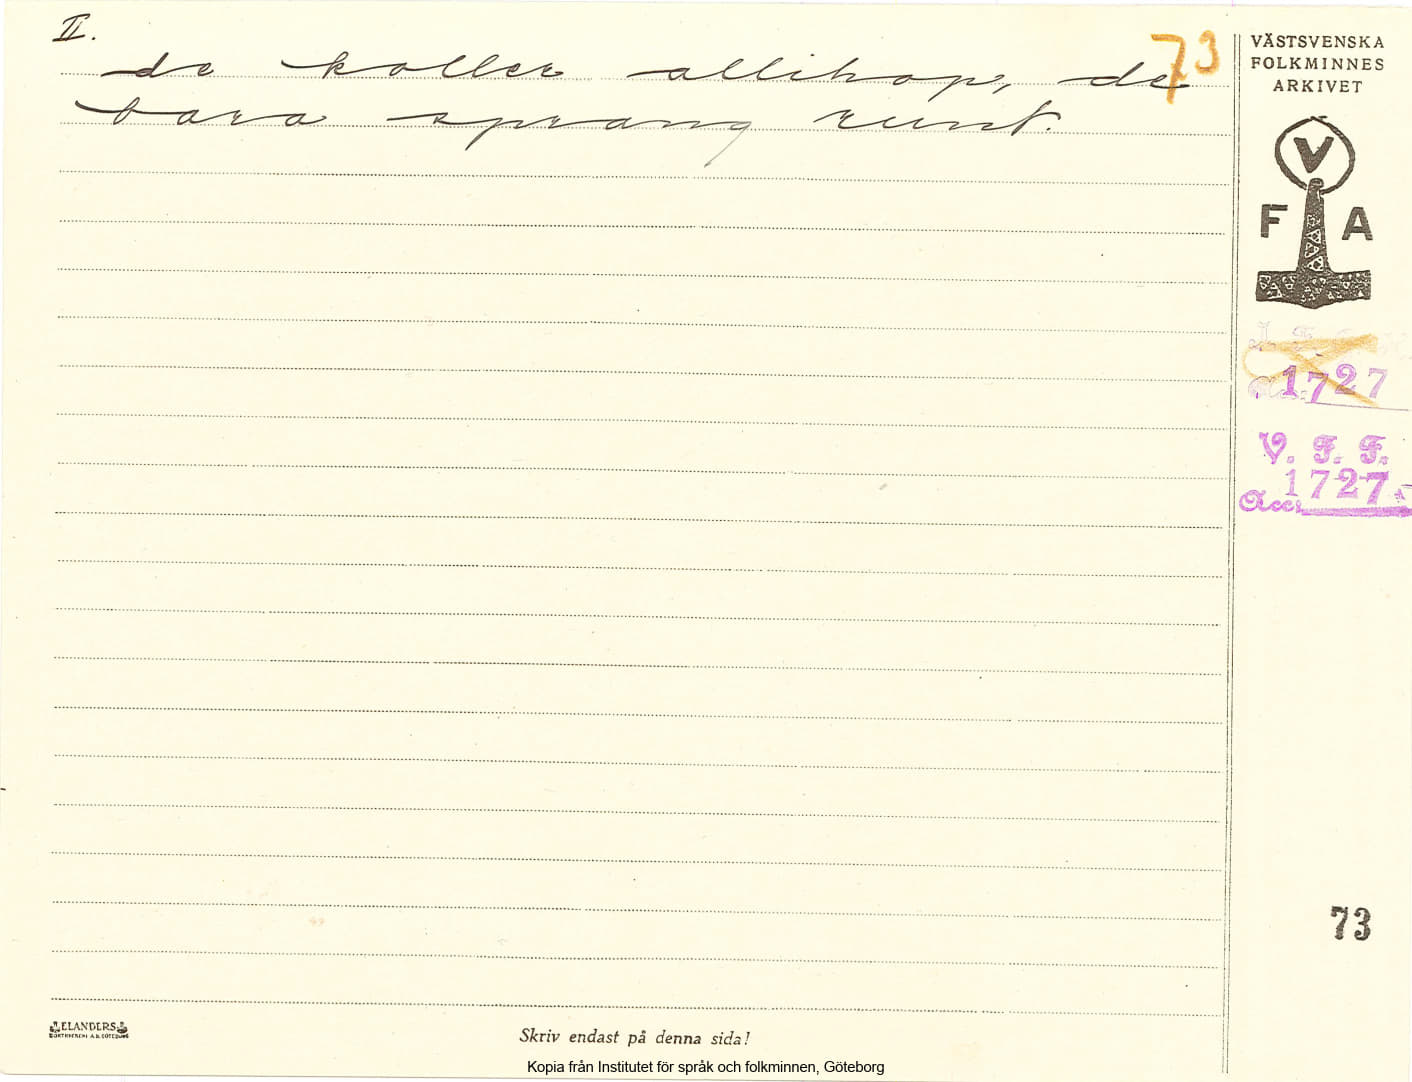 II.
73
de koller allihop, de
bara sprang runt.
VÄSTSVENSKA
FOLKMINNES
ARKIVET
V
F A
1727
V. F. F.
1727
Acc.
73
ELANDERS
Skriv endast på denna sida!
Kopia från Institutet för språk och folkminnen, Göteborg